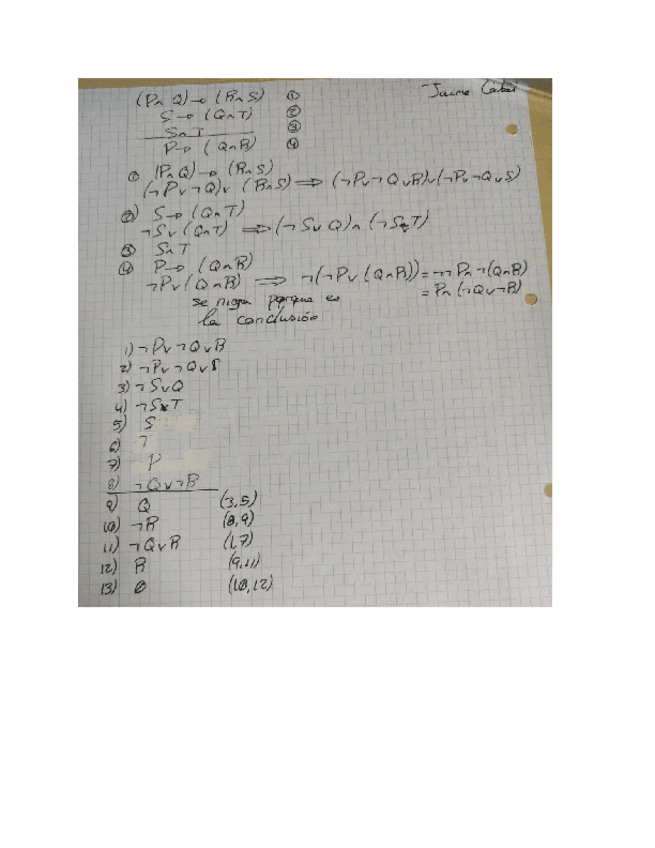 Jaime
(P∧Q)→(R∧S) ①
S→(Q∧T) ②
S∧T ③
P→(Q∧R) ④
① (P∧Q)→(R∧S)
(¬P∨¬Q)∨(R∧S)⟹(¬P∨¬Q∨R)∧(¬P∨¬Q∨S)
② S→(Q∧T)
¬S∨(Q∧T)⟹(¬S∨Q)∧(¬S∨T)
③ S∧T
④ P→(Q∧R)
¬P∨(Q∧R)⟹¬(¬P∨(Q∧R))=¬¬P∧¬(Q∧R)
=P∧(¬Q∨¬R)
se niega porque es
la conclusión
1) ¬P∨¬Q∨R
2) ¬P∨¬Q∨S
3) ¬S∨Q
4) ¬S∨T
5) S
6) T
7) P
8) ¬Q∨¬R
9) Q (3,5)
10) ¬R (8,9)
11) ¬Q∨R (1,7)
12) R (9,11)
13) ∅ (10,12)